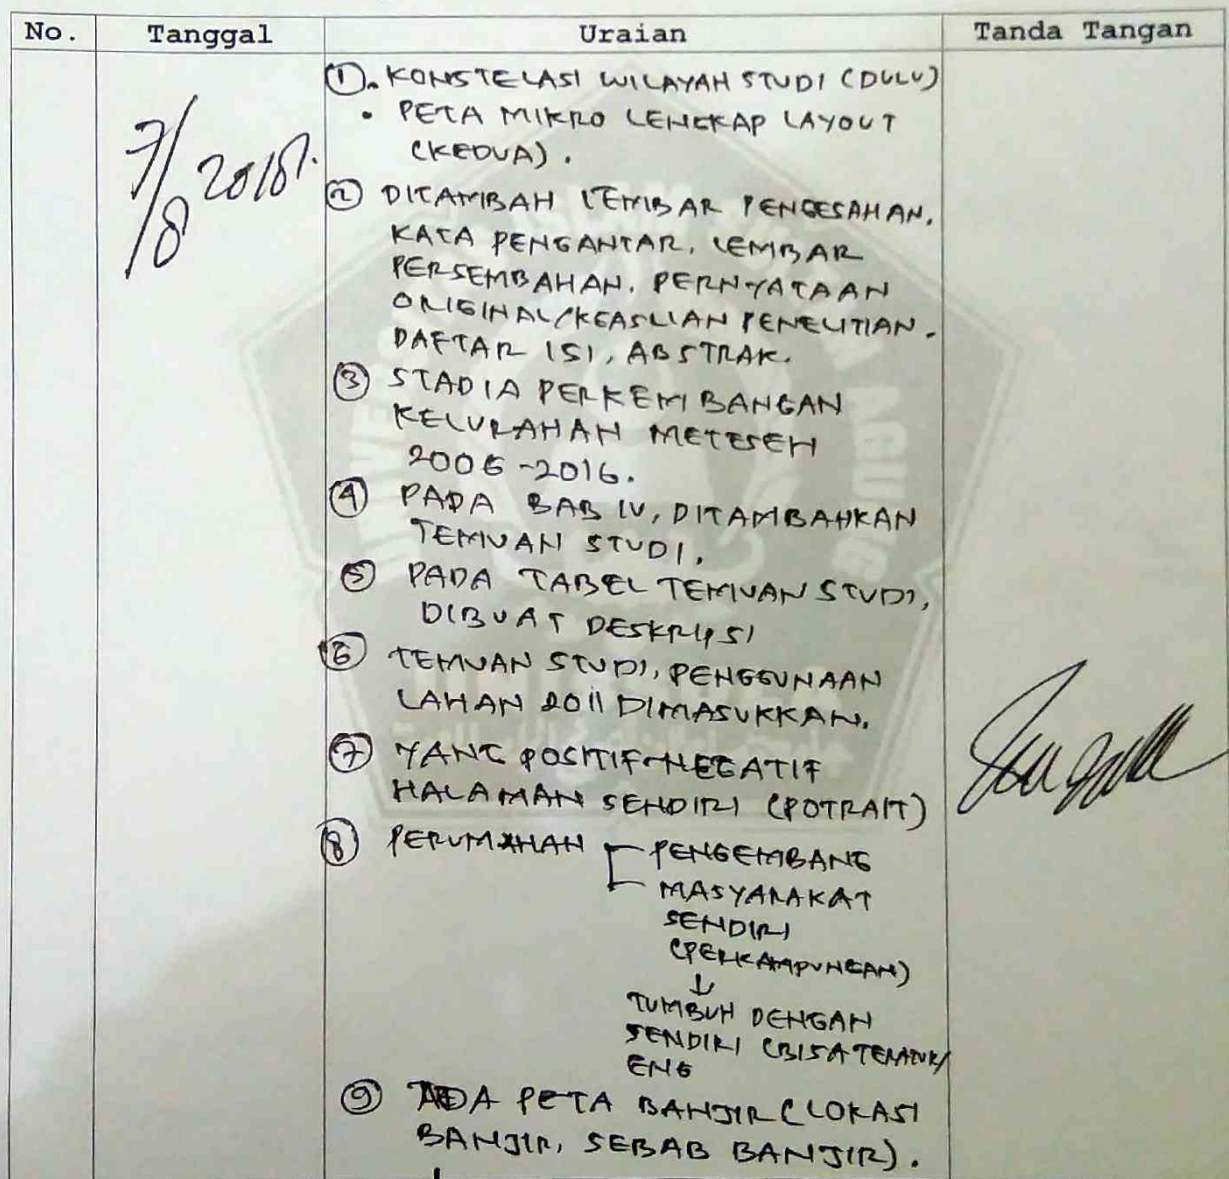 No. Tanggal Uraian Tanda Tangan
7/8 2018.
①. KONSTELASI WILAYAH STUDI (DULU)
• PETA MIKRO LENGKAP LAYOUT
(KEDUA).
② DITAMBAH LEMBAR PENGESAHAN,
KATA PENGANTAR, LEMBAR
PERSEMBAHAN, PERNYATAAN
ORIGINAL/KEASLIAN PENELITIAN.
DAFTAR ISI, ABSTRAK.
③ STADIA PERKEMBANGAN
KELURAHAN METESEH
2006-2016.
④ PADA BAB IV, DITAMBAHKAN
TEMUAN STUDI.
⑤ PADA TABEL TEMUAN STUDI,
DIBUAT DESKRIPSI
⑥ TEMUAN STUDI, PENGGUNAAN
LAHAN 2011 DIMASUKKAN.
⑦ YANG POSITIF-NEGATIF
HALAMAN SENDIRI (POTRAIT)
⑧ PERUMAHAN PENGEMBANG
MASYARAKAT
SENDIRI
(PERKAMPUNGAN)
↓
TUMBUH DENGAN
SENDIRI (BISA TERATUR/
⑨ ADA PETA BANJIR (LOKASI
BANJIR, SEBAB BANJIR).